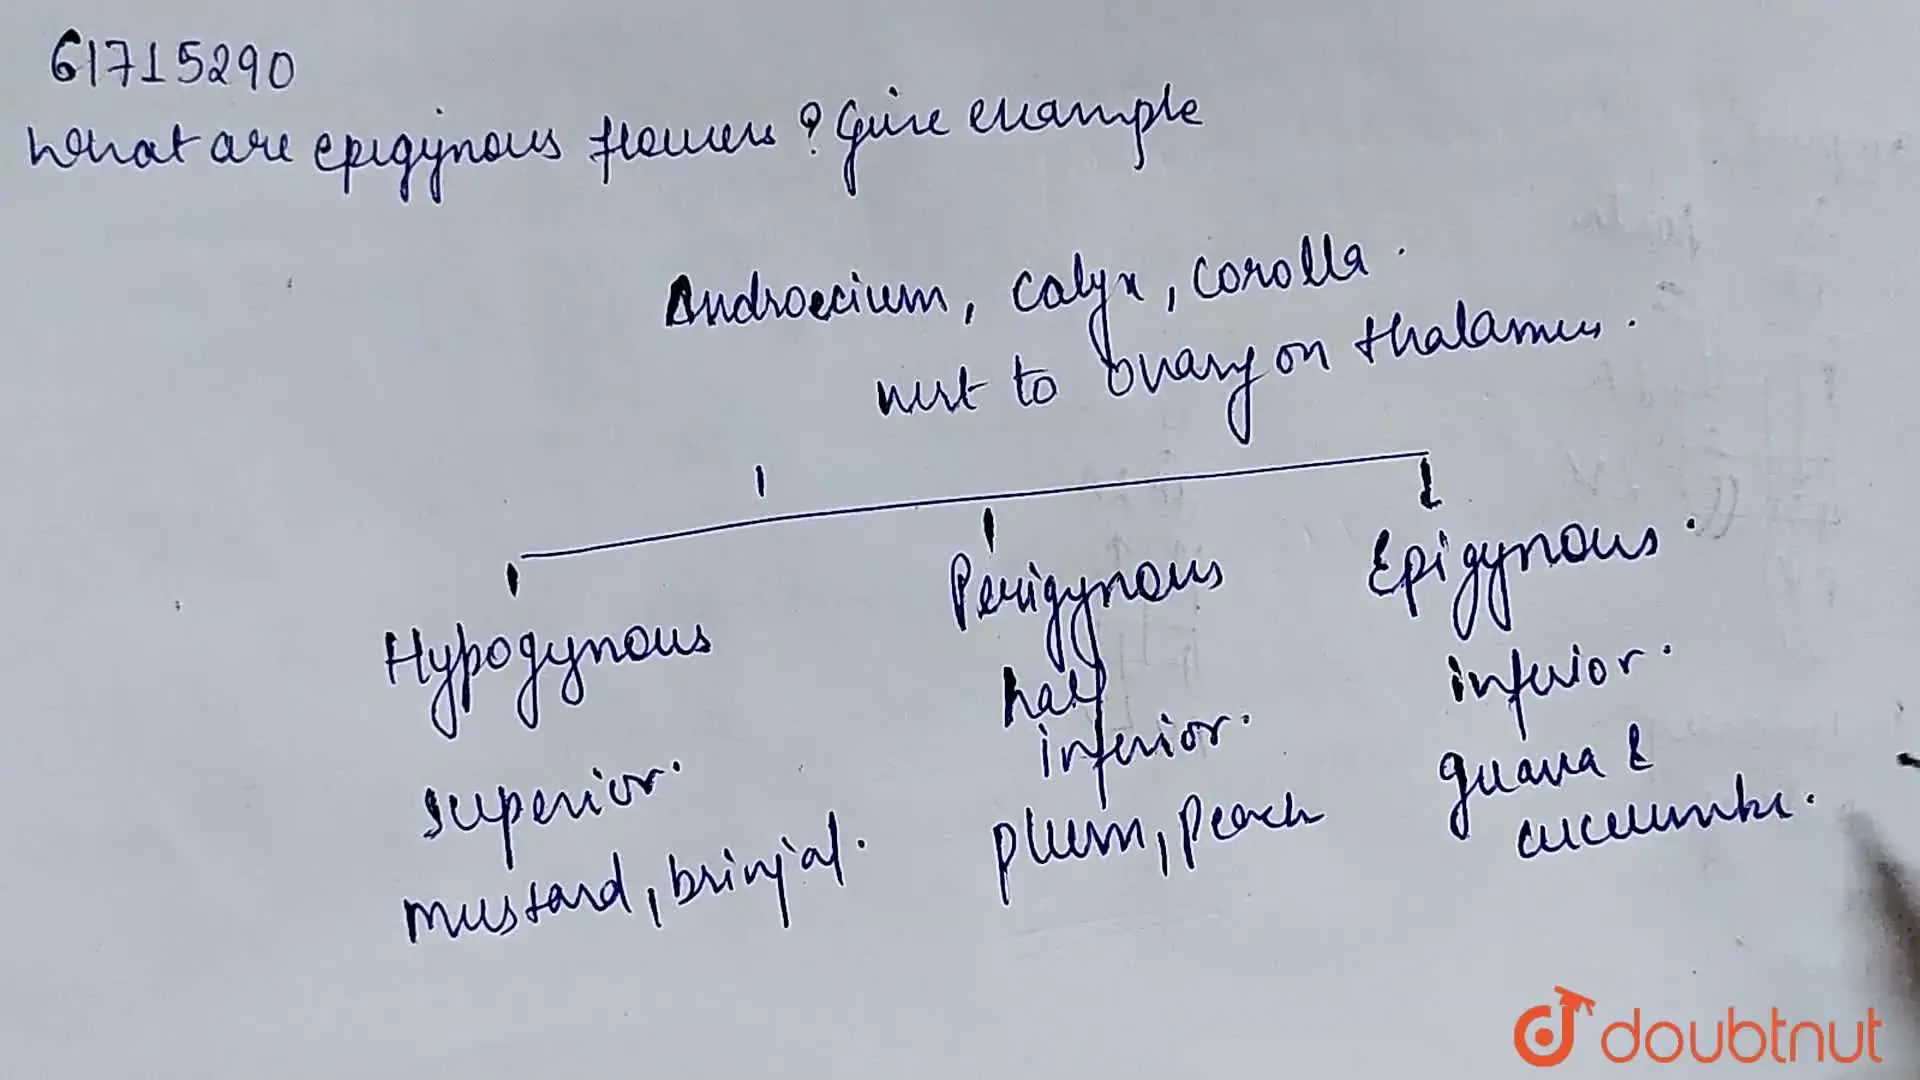 61715290
What are epigynous flowers ? Give example
Androecium, Calyx, Corolla.
wrt to Ovary on thalamus.
Hypogynous
Perigynous
Epigynous.
superior.
half
inferior.
inferior.
mustard, brinjal.
plum, peach
guava &
cucumber.
doubtnut